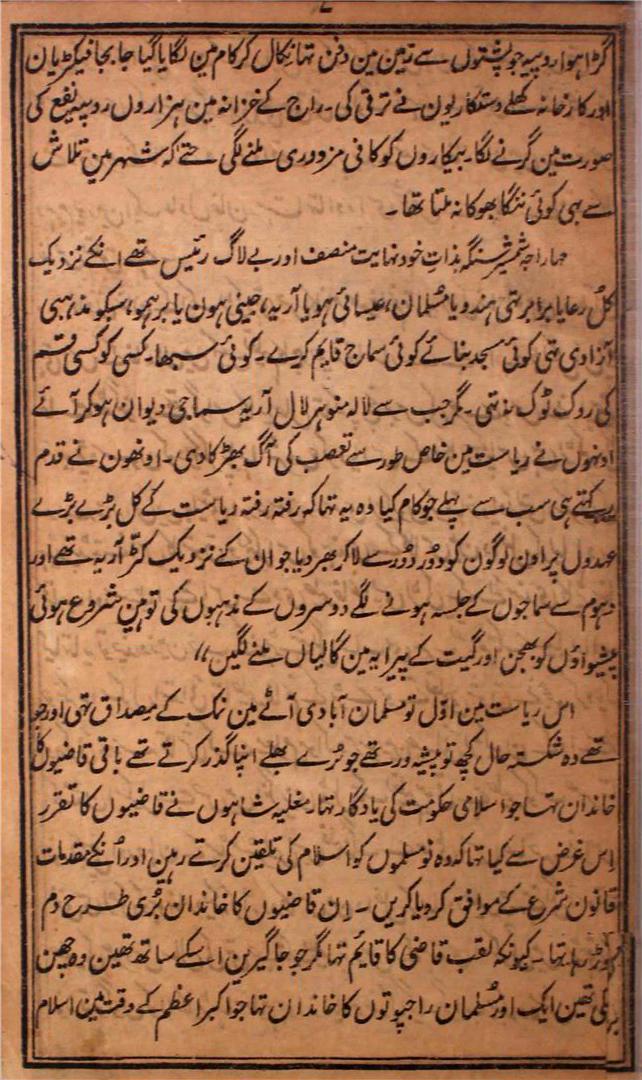 ۷
گڑا ہوا روپیہ جو پشتوں سے زمین مین دفن تہا نکال کر کام مین لگایا گیا جا بجا فیکٹریان
اور کارخانہ کھلے دستکاریون نے ترقی کی۔ راج کے خزانہ مین ہزاروں روپیہ نفع کی
صورت مین گرنے لگا۔ بیکاروں کو کافی مزدوری ملنے لگی حتےٰ کہ شہر مین تلاش
سے بہی کوئی ننگا بھوکا نہ ملتا تھا۔
مہاراجہ شمشیر سنگہ بذات خود نہایت منصف اور بے لاگ رئیس تھے انکے نزدیک
کُل رعایا برابر تہی ہندو یا مُسلمان، عیسائی ہو یا آریہ، جینی ہون یا برہمو، سبکو مذہبی
آزادی تہی کوئی مسجد بنائے کوئی سماج قایم کرے۔ کوئی سبھا۔ کسی کو کسی قسم
کی روک ٹوک نہ تہی۔ مگر جب سے لالہ منوہر لال آریہ سماجی دیوان ہو کر آئے
اونہوں نے ریاست مین خاص طور سے تعصب کی آگ بھڑکا دی۔ اونھون نے قدم
رکہتے ہی سب سے پہلے جو کام کیا وہ یہ تہا کہ رفتہ رفتہ ریاست کے کل بڑے بڑے
عہدوں پر اون لوگون کو دُور دُور سے لا کر بھر دیا جو ان کے نزدیک کٹر آریہ تھے اور
دہوم سے سماجوں کے جلسہ ہونے لگے دوسروں کے مذہبوں کی توہین شروع ہوئی
پیشواؤں کو بھجن اور گیت کے پیرایہ مین گالیاں ملنے لگیں،،
اس ریاست مین اوّل تو مسلمان آبادی آٹے مین نمک کے مصداق تہی اور جو
تھے وہ شکستہ حال کچھ تو پیشہ ور تھے جو بُرے بھلے اپنا گذر کرتے تھے باقی قاضیوں کا
خاندان تہا جو اسلامی حکومت کی یادگار تہا۔ مغلیہ شاہوں نے قاضیوں کا تقرر
اِس غرض سے کیا تہا کہ وہ نو مسلموں کو اسلام کی تلقین کرتے رہین اور اُنکے مقدمات
قانون شرع کے موافق کر دیا کریں۔ اِن قاضیوں کا خاندان بُری طرح دم
توڑ رہا تہا۔ کیونکہ لقب قاضی کا قایم تہا مگر جو جاگیرین اسکے ساتھ تھین وہ چھن
چکی تھین ایک اور مُسلمان راجپوتوں کا خاندان تہا جو اکبر اعظم کے وقت مین اسلام